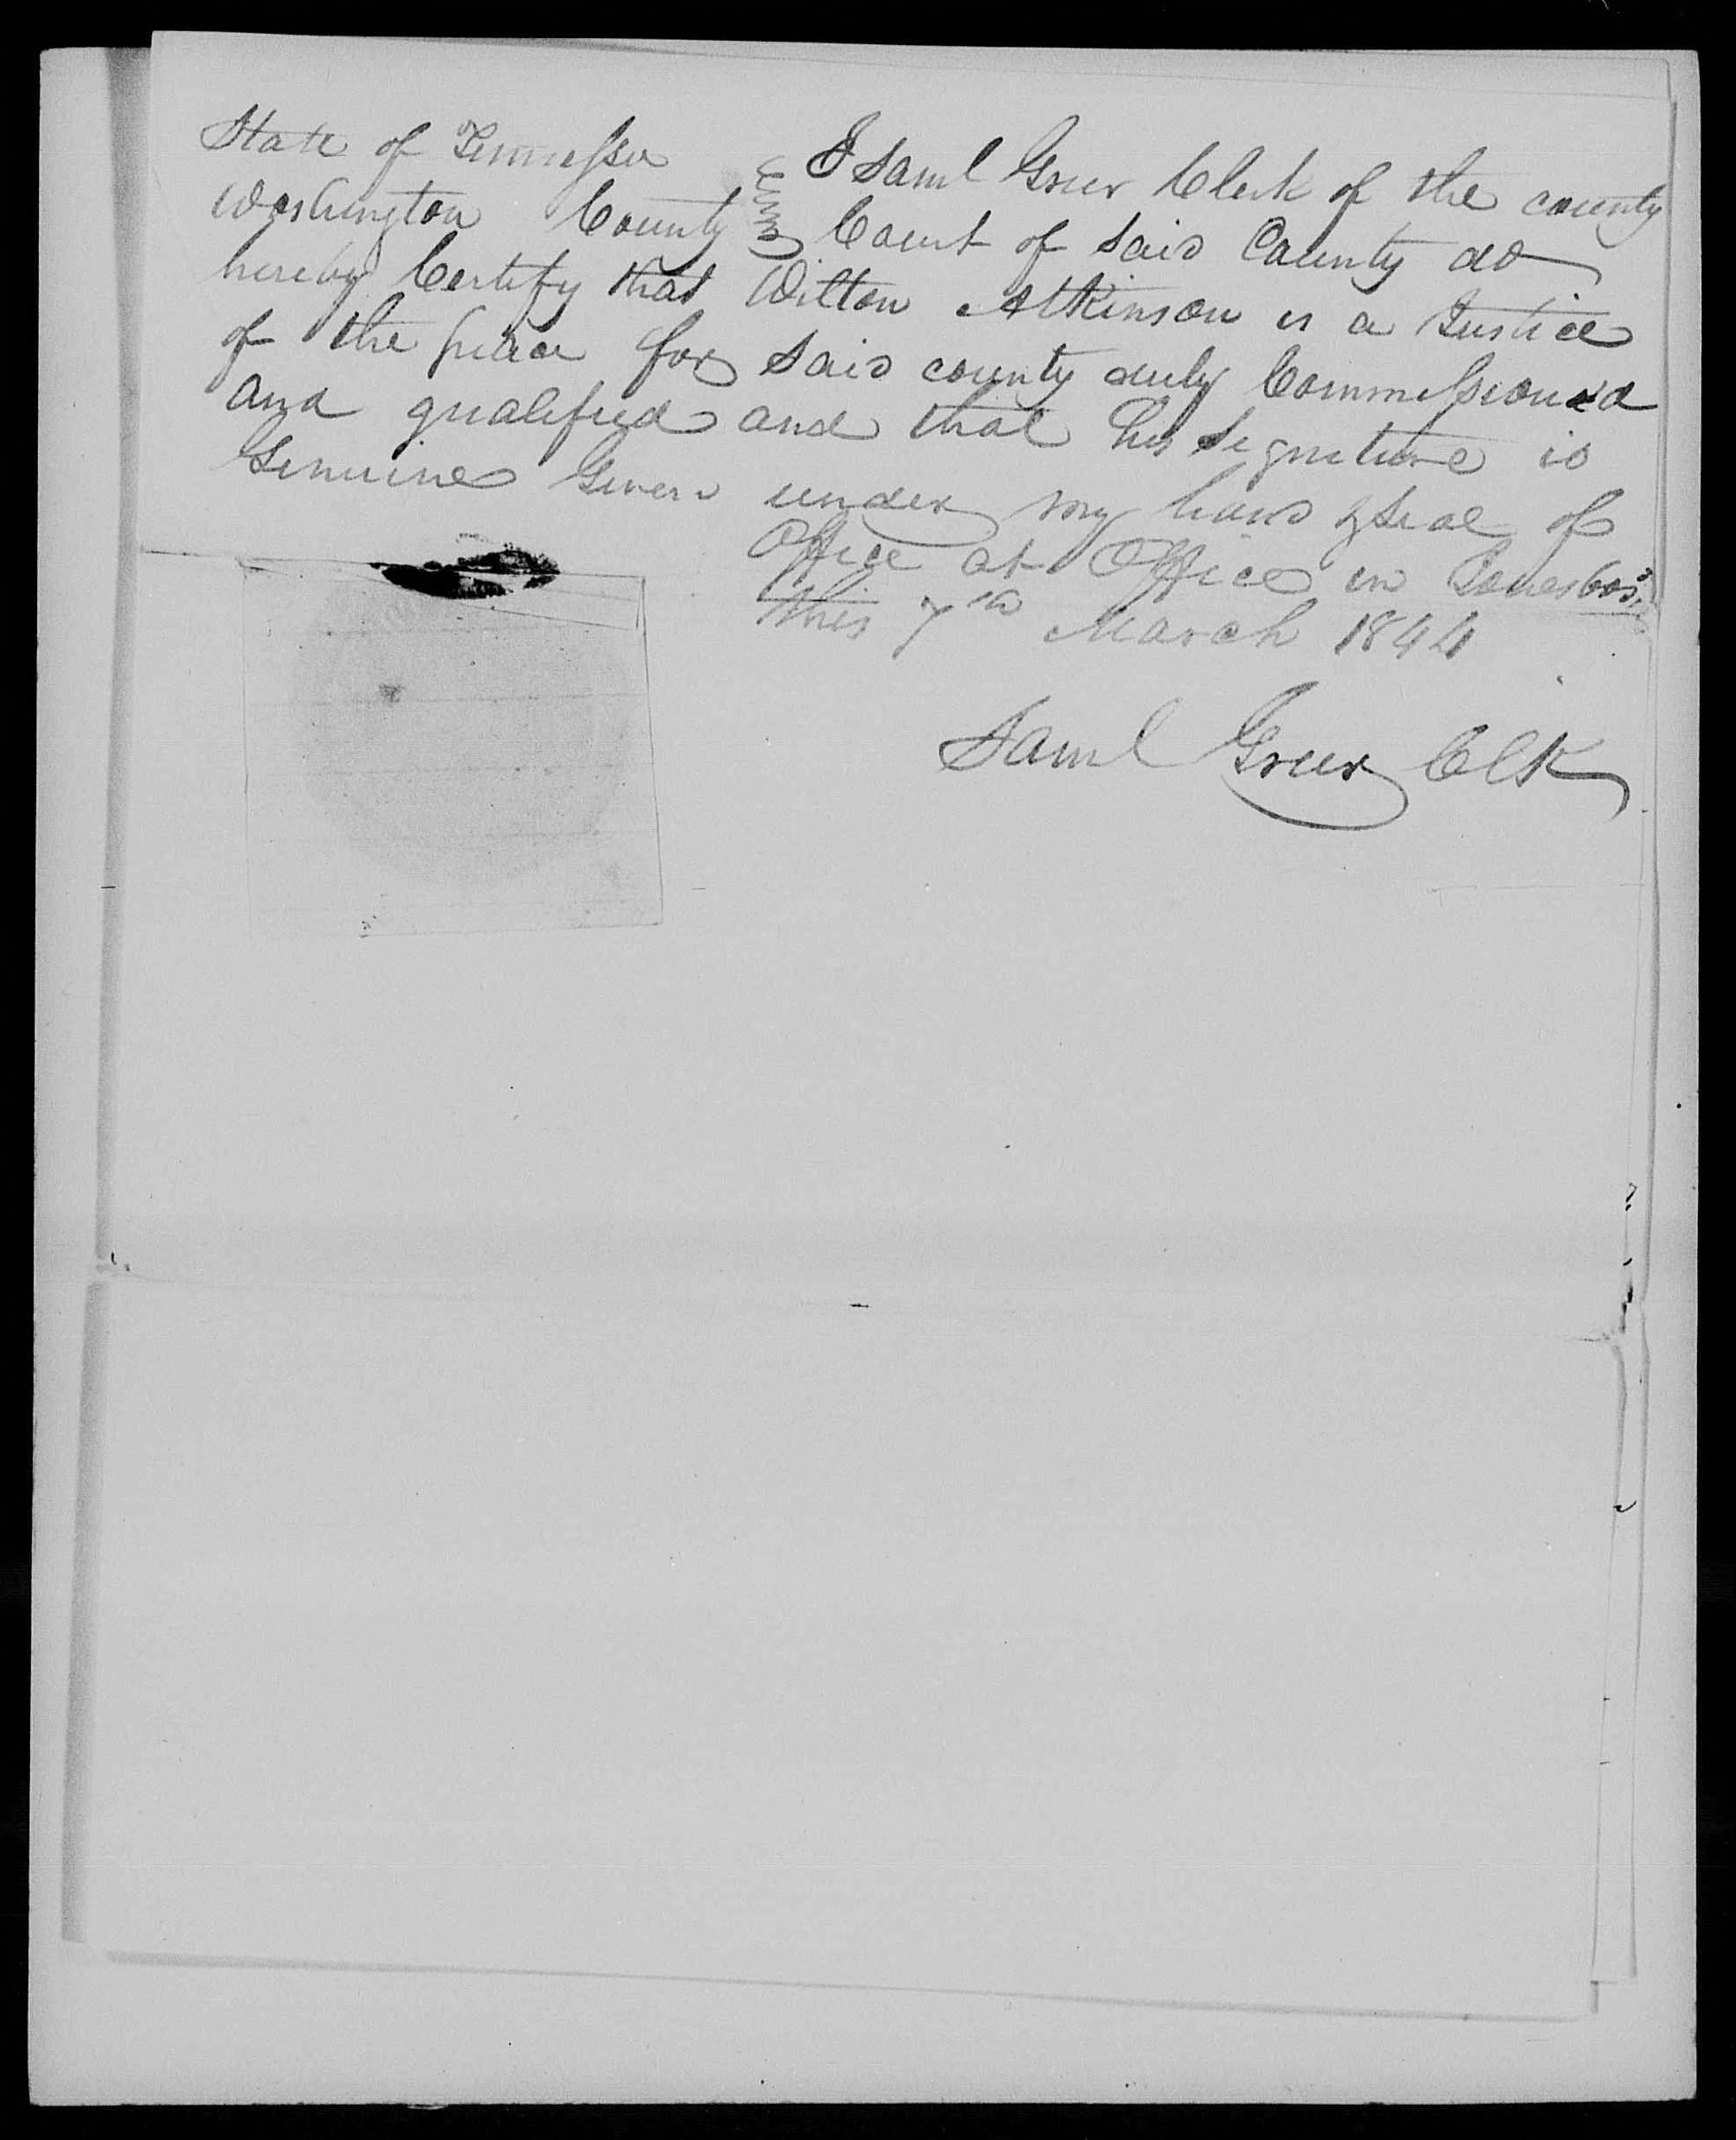 State of Tennessee I Saml Greer Clerk of the county
Washington County Court of said County do
hereby Certify that Wilton Atkinson is a Justice
of the peace for said county duly Commissioned
and qualified and that his signature is
Genuine Given under my hand & seal of
Office at Office in Jonesboro
this 7th March 1844
Saml Greer Clk